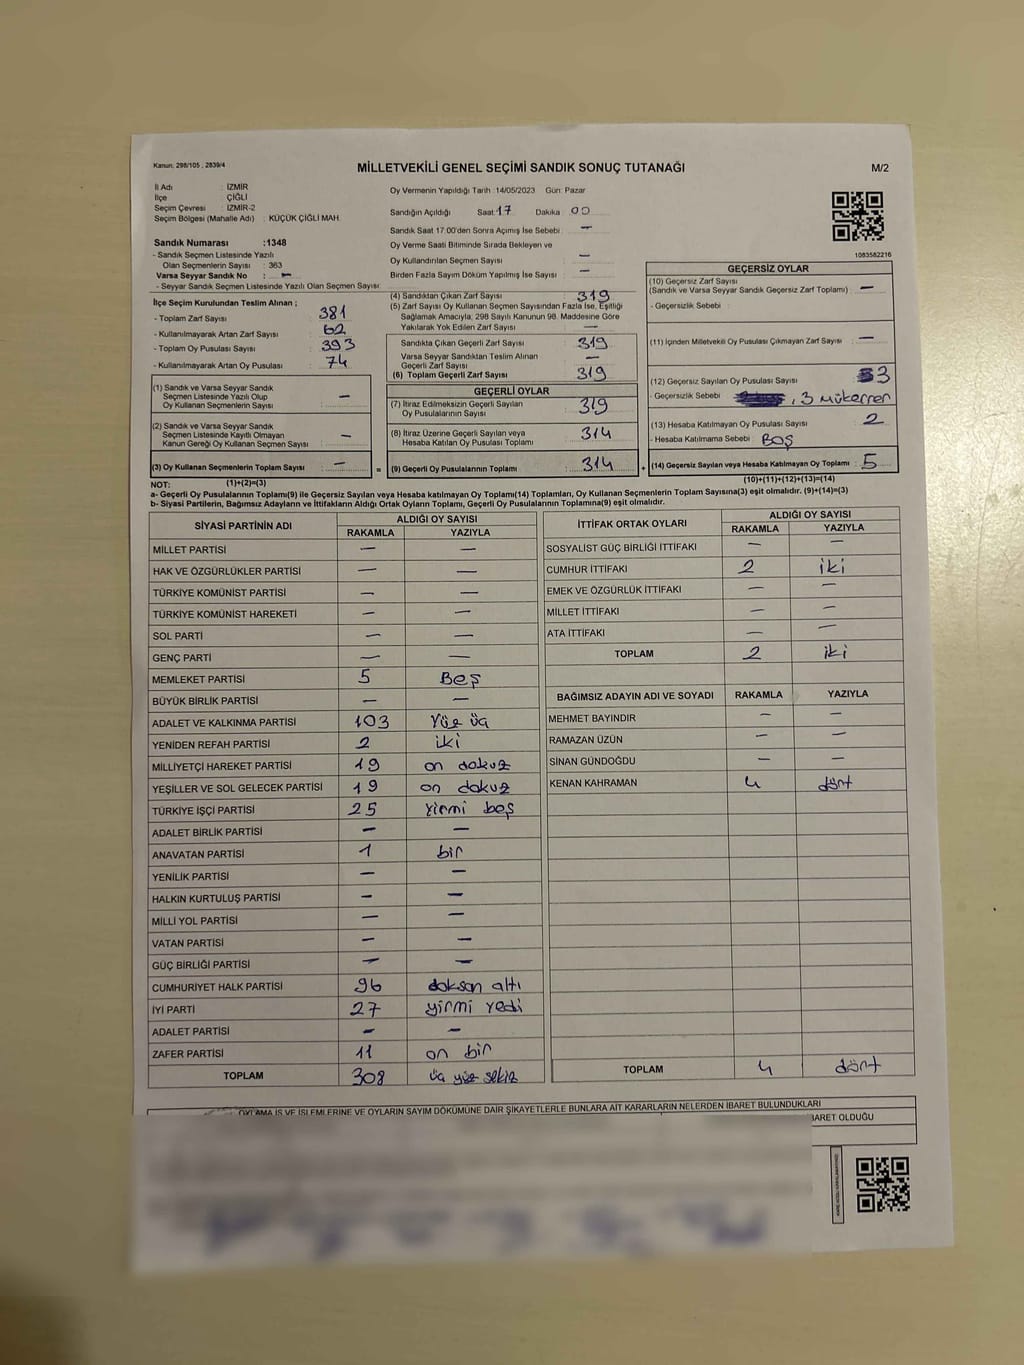 Kanun: 298/105 , 2839/4
MİLLETVEKİLİ GENEL SEÇİMİ SANDIK SONUÇ TUTANAĞI
M/2
İl Adı : İZMİR
İlçe : ÇİĞLİ
Seçim Çevresi : İZMİR-2
Seçim Bölgesi (Mahalle Adı) : KÜÇÜK ÇİĞLİ MAH.
Sandık Numarası :1348
- Sandık Seçmen Listesinde Yazılı
Olan Seçmenlerin Sayısı : 363
Varsa Seyyar Sandık No : —
- Seyyar Sandık Seçmen Listesinde Yazılı Olan Seçmen Sayısı:
Oy Vermenin Yapıldığı Tarih :14/05/2023 Gün: Pazar
Sandığın Açıldığı Saat 17 Dakika 00
Sandık Saat 17:00'den Sonra Açımış İse Sebebi : —
Oy Verme Saati Bitiminde Sırada Bekleyen ve
Oy Kullandırılan Seçmen Sayısı : —
Birden Fazla Sayım Döküm Yapılmış İse Sayısı : —
1083582216
İlçe Seçim Kurulundan Teslim Alınan ;
- Toplam Zarf Sayısı : 381
- Kullanılmayarak Artan Zarf Sayısı : 62
- Toplam Oy Pusulası Sayısı : 393
- Kullanılmayarak Artan Oy Pusulası : 74
(1) Sandık ve Varsa Seyyar Sandık
Seçmen Listesinde Yazılı Olup
Oy Kullanan Seçmenlerin Sayısı : —
(2) Sandık ve Varsa Seyyar Sandık
Seçmen Listesinde Kayıtlı Olmayan
Kanun Gereği Oy Kullanan Seçmen Sayısı : —
(3) Oy Kullanan Seçmenlerin Toplam Sayısı : —
(4) Sandıktan Çıkan Zarf Sayısı : 319
(5) Zarf Sayısı Oy Kullanan Seçmen Sayısından Fazla İse, Eşitliği
Sağlamak Amacıyla; 298 Sayılı Kanunun 98. Maddesine Göre
Yakılarak Yok Edilen Zarf Sayısı : —
Sandıkta Çıkan Geçerli Zarf Sayısı : 319
Varsa Seyyar Sandıktan Teslim Alınan
Geçerli Zarf Sayısı : —
(6) Toplam Geçerli Zarf Sayısı : 319
GEÇERLİ OYLAR
(7) İtiraz Edilmeksizin Geçerli Sayılan
Oy Pusulalarının Sayısı : 319
(8) İtiraz Üzerine Geçerli Sayılan veya
Hesaba Katılan Oy Pusulası Toplamı : 314
= (9) Geçerli Oy Pusulalarının Toplamı : 314 +
GEÇERSİZ OYLAR
(10) Geçersiz Zarf Sayısı
(Sandık ve Varsa Seyyar Sandık Geçersiz Zarf Toplamı) : —
- Geçersizlik Sebebi :
(11) İçinden Milletvekili Oy Pusulası Çıkmayan Zarf Sayısı : —
(12) Geçersiz Sayılan Oy Pusulası Sayısı : 3
- Geçersizlik Sebebi : , 3 Mükerrer
(13) Hesaba Katılmayan Oy Pusulası Sayısı : 2
- Hesaba Katılmama Sebebi : BOŞ
(14) Geçersiz Sayılan veya Hesaba Katılmayan Oy Toplamı : 5
NOT: (1)+(2)=(3)
(10)+(11)+(12)+(13)=(14)
a- Geçerli Oy Pusulalarının Toplamı(9) ile Geçersiz Sayılan veya Hesaba katılmayan Oy Toplamı(14) Toplamları, Oy Kullanan Seçmenlerin Toplam Sayısına(3) eşit olmalıdır. (9)+(14)=(3)
b- Siyasi Partilerin, Bağımsız Adayların ve İttifakların Aldığı Ortak Oyların Toplamı, Geçerli Oy Pusulalarının Toplamına(9) eşit olmalıdır.
SİYASİ PARTİNİN ADI
ALDIĞI OY SAYISI
RAKAMLA YAZIYLA
MİLLET PARTİSİ — —
HAK VE ÖZGÜRLÜKLER PARTİSİ — —
TÜRKİYE KOMÜNİST PARTİSİ — —
TÜRKİYE KOMÜNİST HAREKETİ — —
SOL PARTİ — —
GENÇ PARTİ — —
MEMLEKET PARTİSİ 5 Beş
BÜYÜK BİRLİK PARTİSİ — —
ADALET VE KALKINMA PARTİSİ 103 Yüz üç
YENİDEN REFAH PARTİSİ 2 iki
MİLLİYETÇİ HAREKET PARTİSİ 19 on dokuz
YEŞİLLER VE SOL GELECEK PARTİSİ 19 on dokuz
TÜRKİYE İŞÇİ PARTİSİ 25 yirmi beş
ADALET BİRLİK PARTİSİ — —
ANAVATAN PARTİSİ 1 bir
YENİLİK PARTİSİ — —
HALKIN KURTULUŞ PARTİSİ — —
MİLLİ YOL PARTİSİ — —
VATAN PARTİSİ — —
GÜÇ BİRLİĞİ PARTİSİ — —
CUMHURİYET HALK PARTİSİ 96 doksan altı
İYİ PARTİ 27 yirmi yedi
ADALET PARTİSİ — —
ZAFER PARTİSİ 11 on bir
TOPLAM 308 üç yüz sekiz
İTTİFAK ORTAK OYLARI
ALDIĞI OY SAYISI
RAKAMLA YAZIYLA
SOSYALİST GÜÇ BİRLİĞİ İTTİFAKI — —
CUMHUR İTTİFAKI 2 iki
EMEK VE ÖZGÜRLÜK İTTİFAKI — —
MİLLET İTTİFAKI — —
ATA İTTİFAKI — —
TOPLAM 2 iki
BAĞIMSIZ ADAYIN ADI VE SOYADI RAKAMLA YAZIYLA
MEHMET BAYINDIR — —
RAMAZAN ÜZÜN — —
SİNAN GÜNDOĞDU — —
KENAN KAHRAMAN 4 dört
TOPLAM 4 dört
OYLAMA İŞ VE İŞLEMLERİNE VE OYLARIN SAYIM DÖKÜMÜNE DAİR ŞİKAYETLERLE BUNLARA AİT KARARLARIN NELERDEN İBARET BULUNDUKLARI
İBARET OLDUĞU